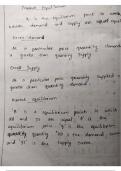 Market Equilibrium
It is equilibrium point in which
demand and supply are equal
Excess demand
At a particular price quantity demanded
is greater than quantity supply.
Excess Supply
At a particular price quantity supplied is
greater than quantity demanded.
Market equilibrium
is a equilibrium points in which
and are equal. 'P' is the
equilibrium price 'q' is the equilibrium
quantity 'DD' is the demand curve
and 'SS' is the supply curve.